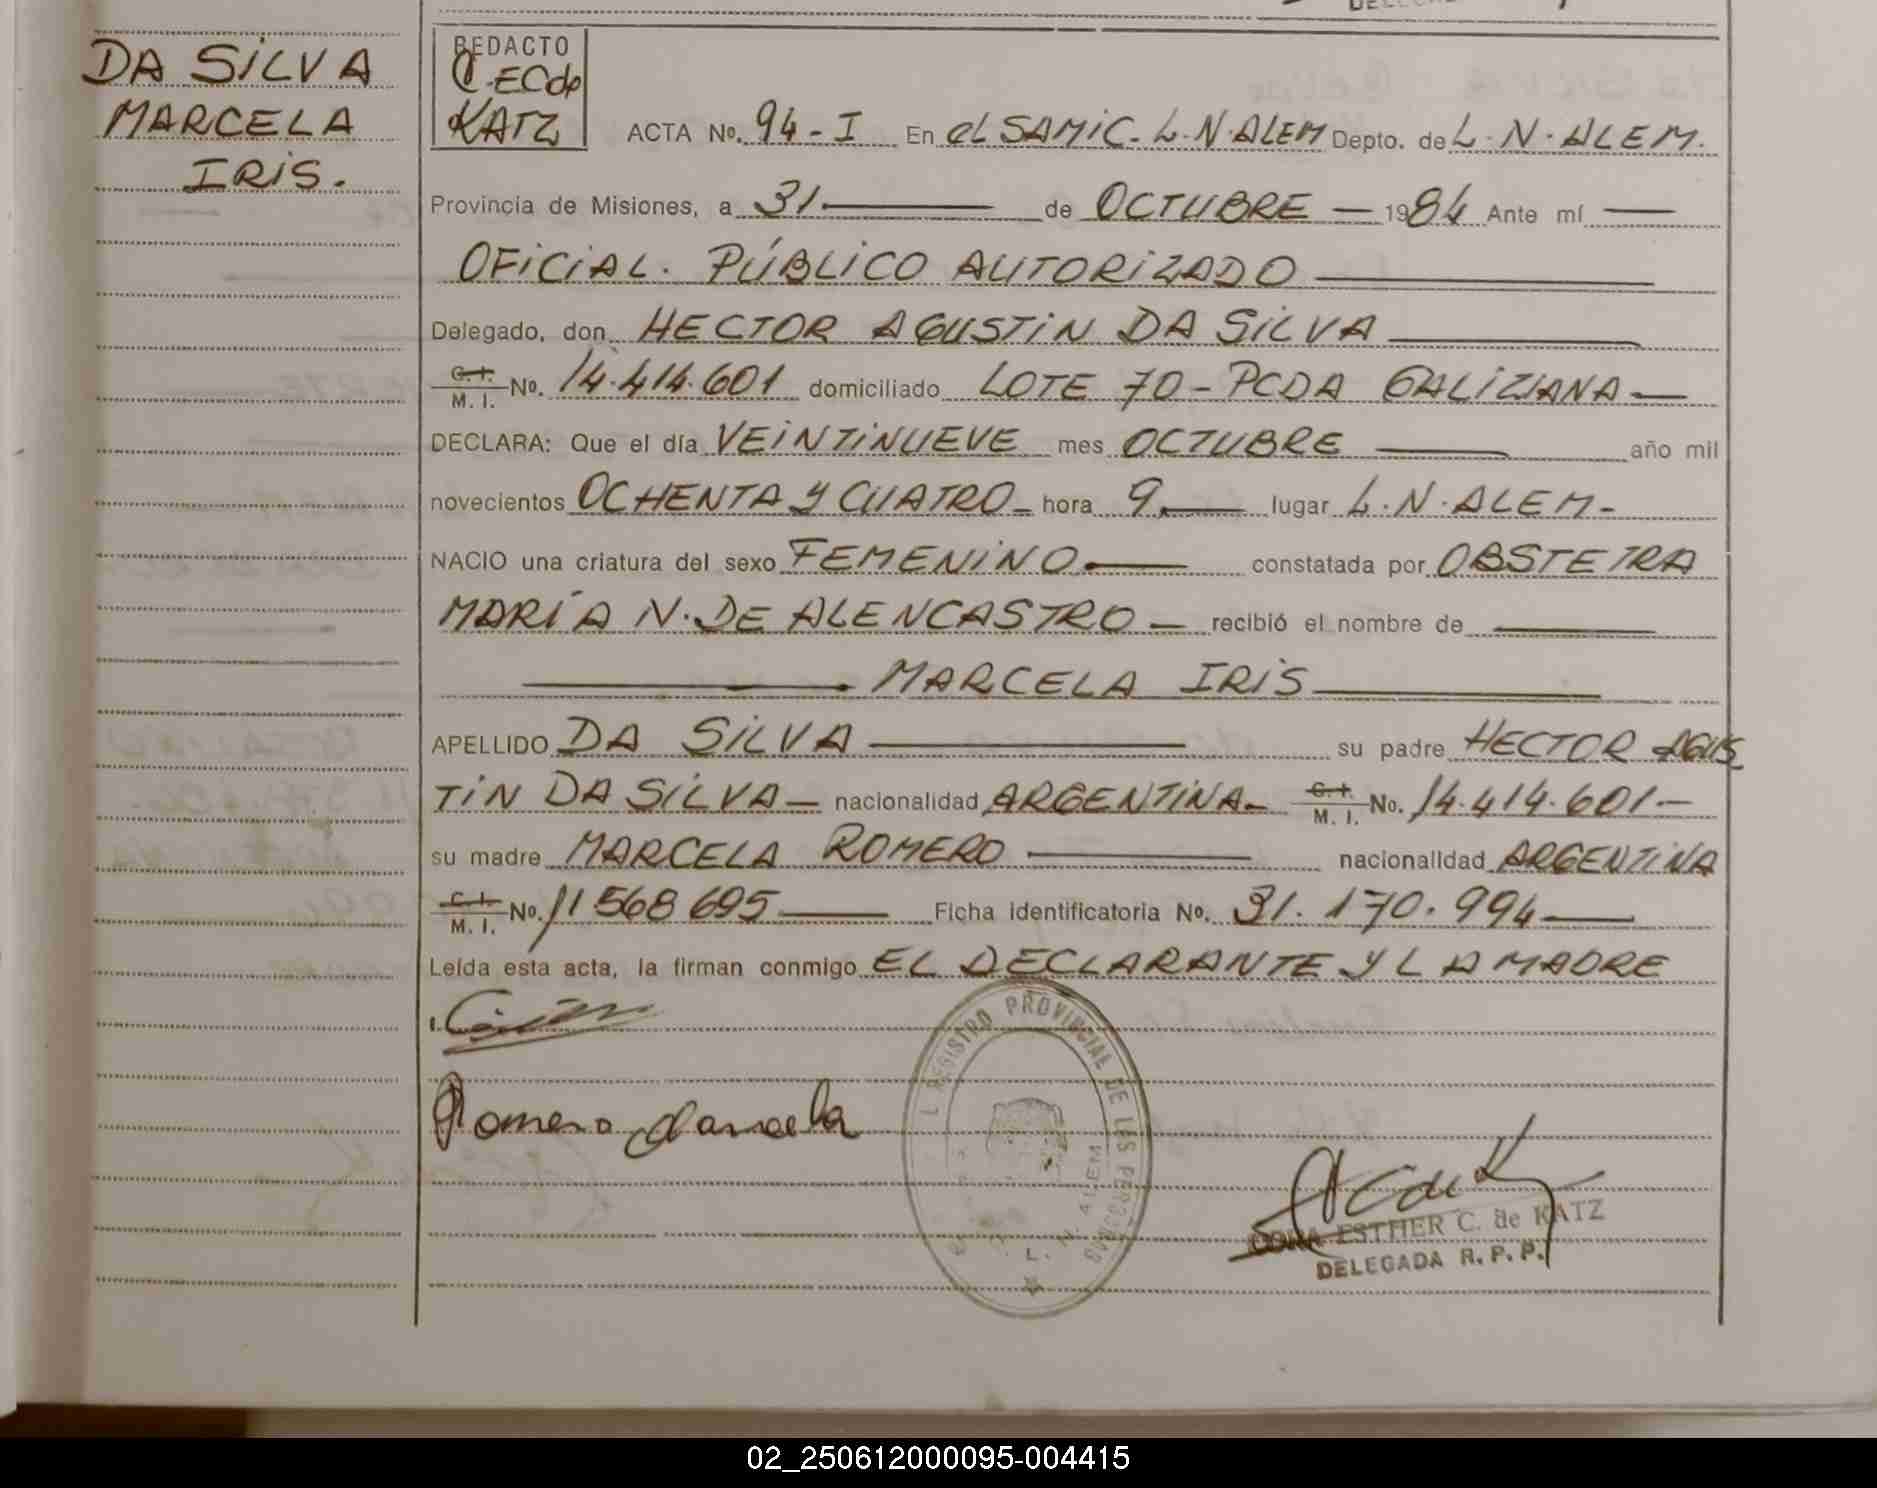 DA SILVA
MARCELA
IRIS.
REDACTO
C.ECde
KATZ
ACTA No. 94 - I En el SAMIC. L.N.ALEM Depto. de L.N.ALEM.
Provincia de Misiones, a 31 de OCTUBRE 1984 Ante mí
OFICIAL. PÚBLICO AUTORIZADO
Delegado, don HECTOR AGUSTIN DA SILVA
C. I. / M. I. No. 14.414.601 domiciliado LOTE 70 - PCDA GALIZIANA
DECLARA: Que el día VEINTINUEVE mes OCTUBRE año mil
novecientos OCHENTA Y CUATRO hora 9 lugar L.N.ALEM
NACIO una criatura del sexo FEMENINO constatada por OBSTETRA
MARÍA N. DE ALENCASTRO recibió el nombre de
MARCELA IRIS
APELLIDO DA SILVA su padre HECTOR AGUS
TIN DA SILVA nacionalidad ARGENTINA C. I. / M. I. No. 14.414.601
su madre MARCELA ROMERO nacionalidad ARGENTINA
C. I. / M. I. No. 11568695 Ficha identificatoria No. 31.170.994
Leída esta acta, la firman conmigo EL DECLARANTE Y LA MADRE
REGISTRO PROVINCIAL DE LES PERSONAS
L. N. ALEM
Romero Marcela
CORA ESTHER C. de KATZ
DELEGADA R. P. P.
02_250612000095-004415